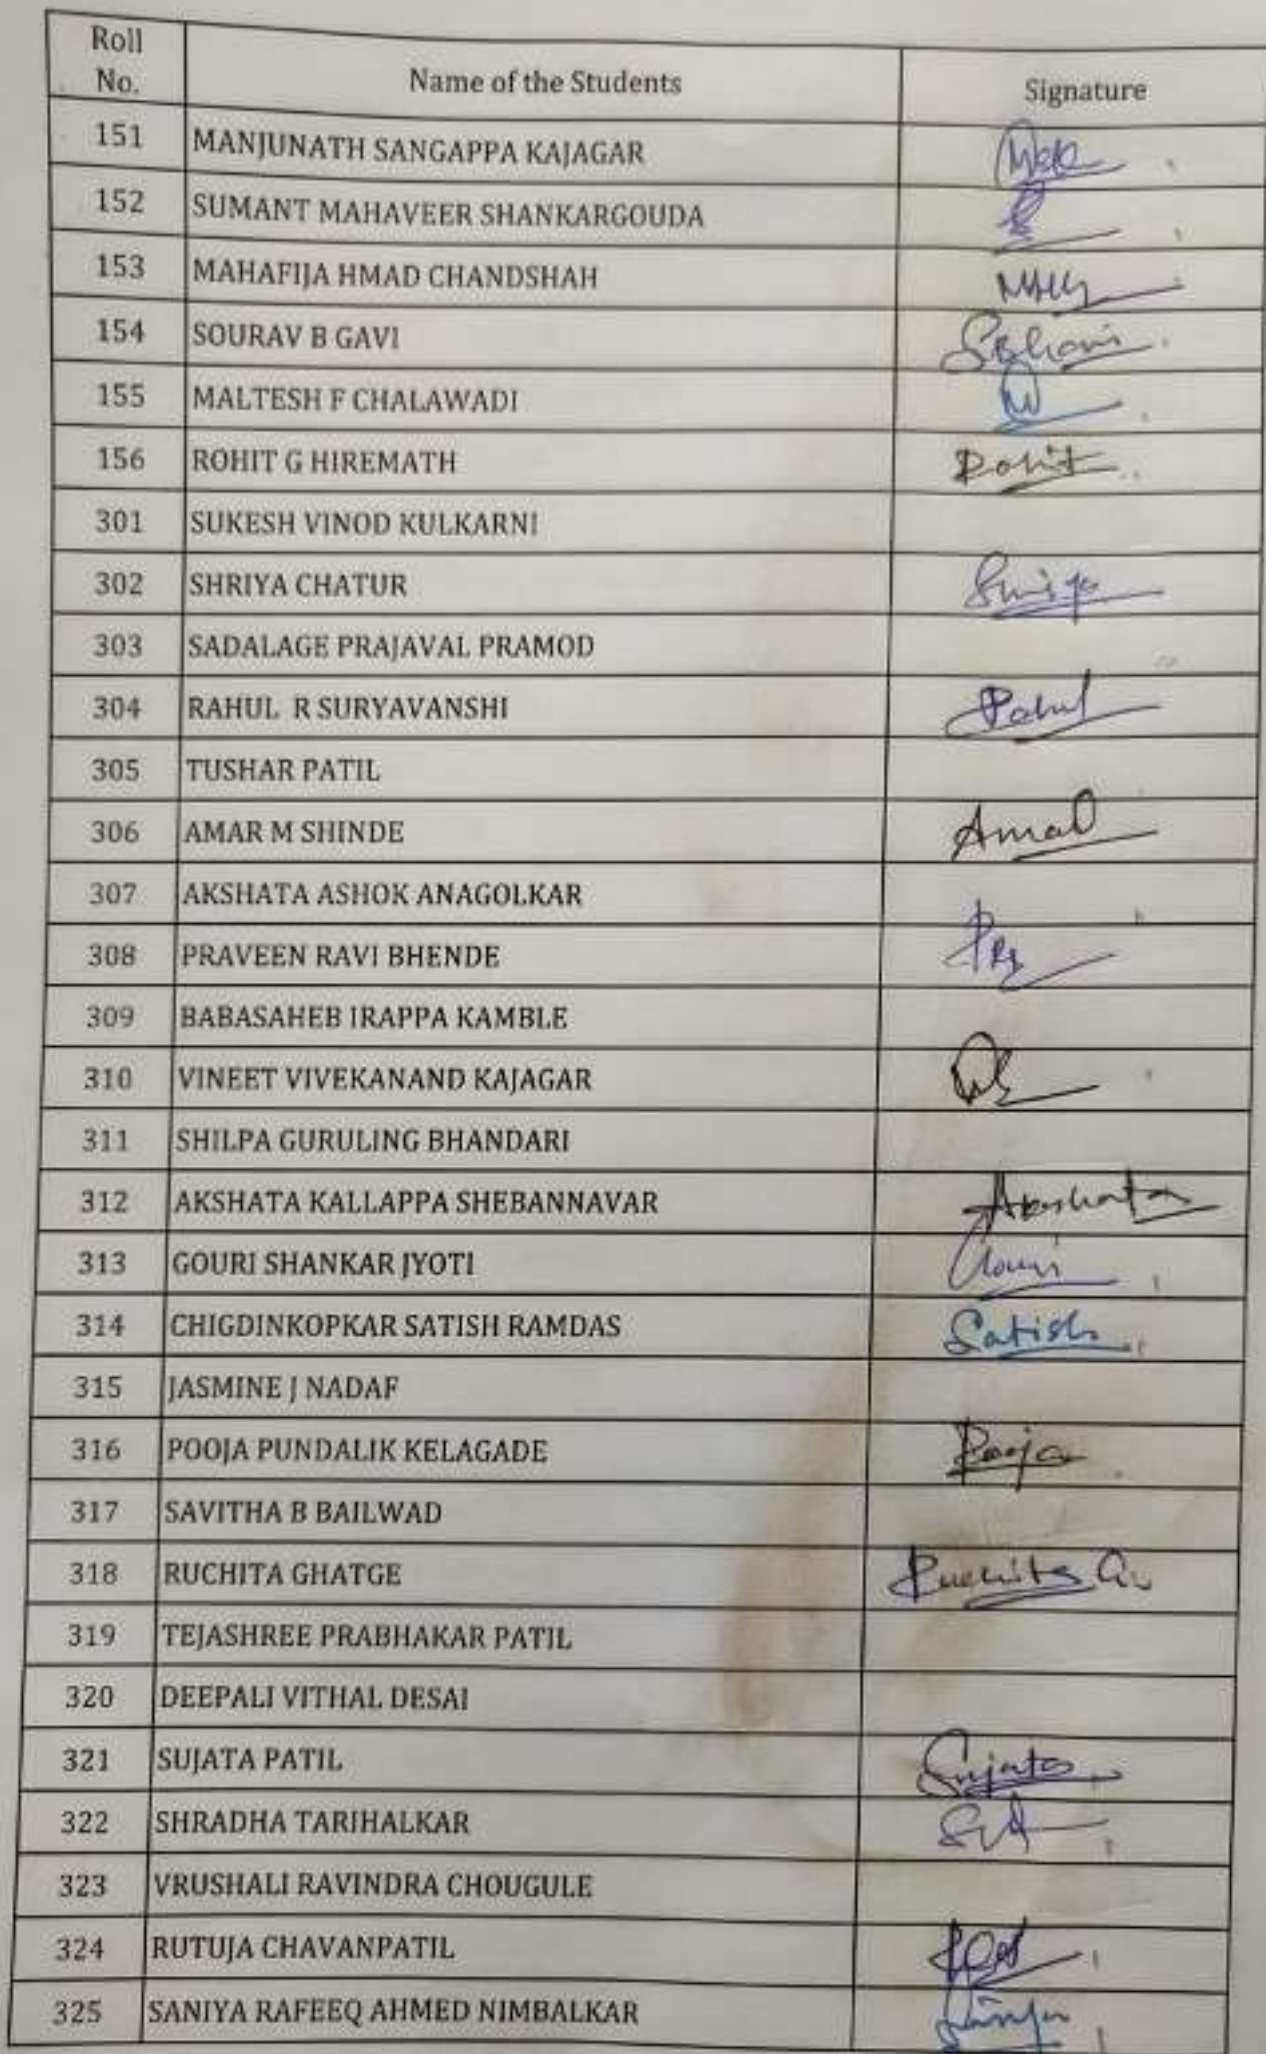 Roll No. Name of the Students Signature
151 MANJUNATH SANGAPPA KAJAGAR
152 SUMANT MAHAVEER SHANKARGOUDA
153 MAHAFIJA HMAD CHANDSHAH
154 SOURAV B GAVI
155 MALTESH F CHALAWADI
156 ROHIT G HIREMATH Rohit
301 SUKESH VINOD KULKARNI
302 SHRIYA CHATUR
303 SADALAGE PRAJAVAL PRAMOD
304 RAHUL R SURYAVANSHI Rahul
305 TUSHAR PATIL
306 AMAR M SHINDE Amar
307 AKSHATA ASHOK ANAGOLKAR
308 PRAVEEN RAVI BHENDE
309 BABASAHEB IRAPPA KAMBLE
310 VINEET VIVEKANAND KAJAGAR
311 SHILPA GURULING BHANDARI
312 AKSHATA KALLAPPA SHEBANNAVAR Akshata
313 GOURI SHANKAR JYOTI Gouri
314 CHIGDINKOPKAR SATISH RAMDAS Satish
315 JASMINE J NADAF
316 POOJA PUNDALIK KELAGADE Pooja
317 SAVITHA B BAILWAD
318 RUCHITA GHATGE Ruchita G.
319 TEJASHREE PRABHAKAR PATIL
320 DEEPALI VITHAL DESAI
321 SUJATA PATIL Sujata
322 SHRADHA TARIHALKAR
323 VRUSHALI RAVINDRA CHOUGULE
324 RUTUJA CHAVANPATIL
325 SANIYA RAFEEQ AHMED NIMBALKAR